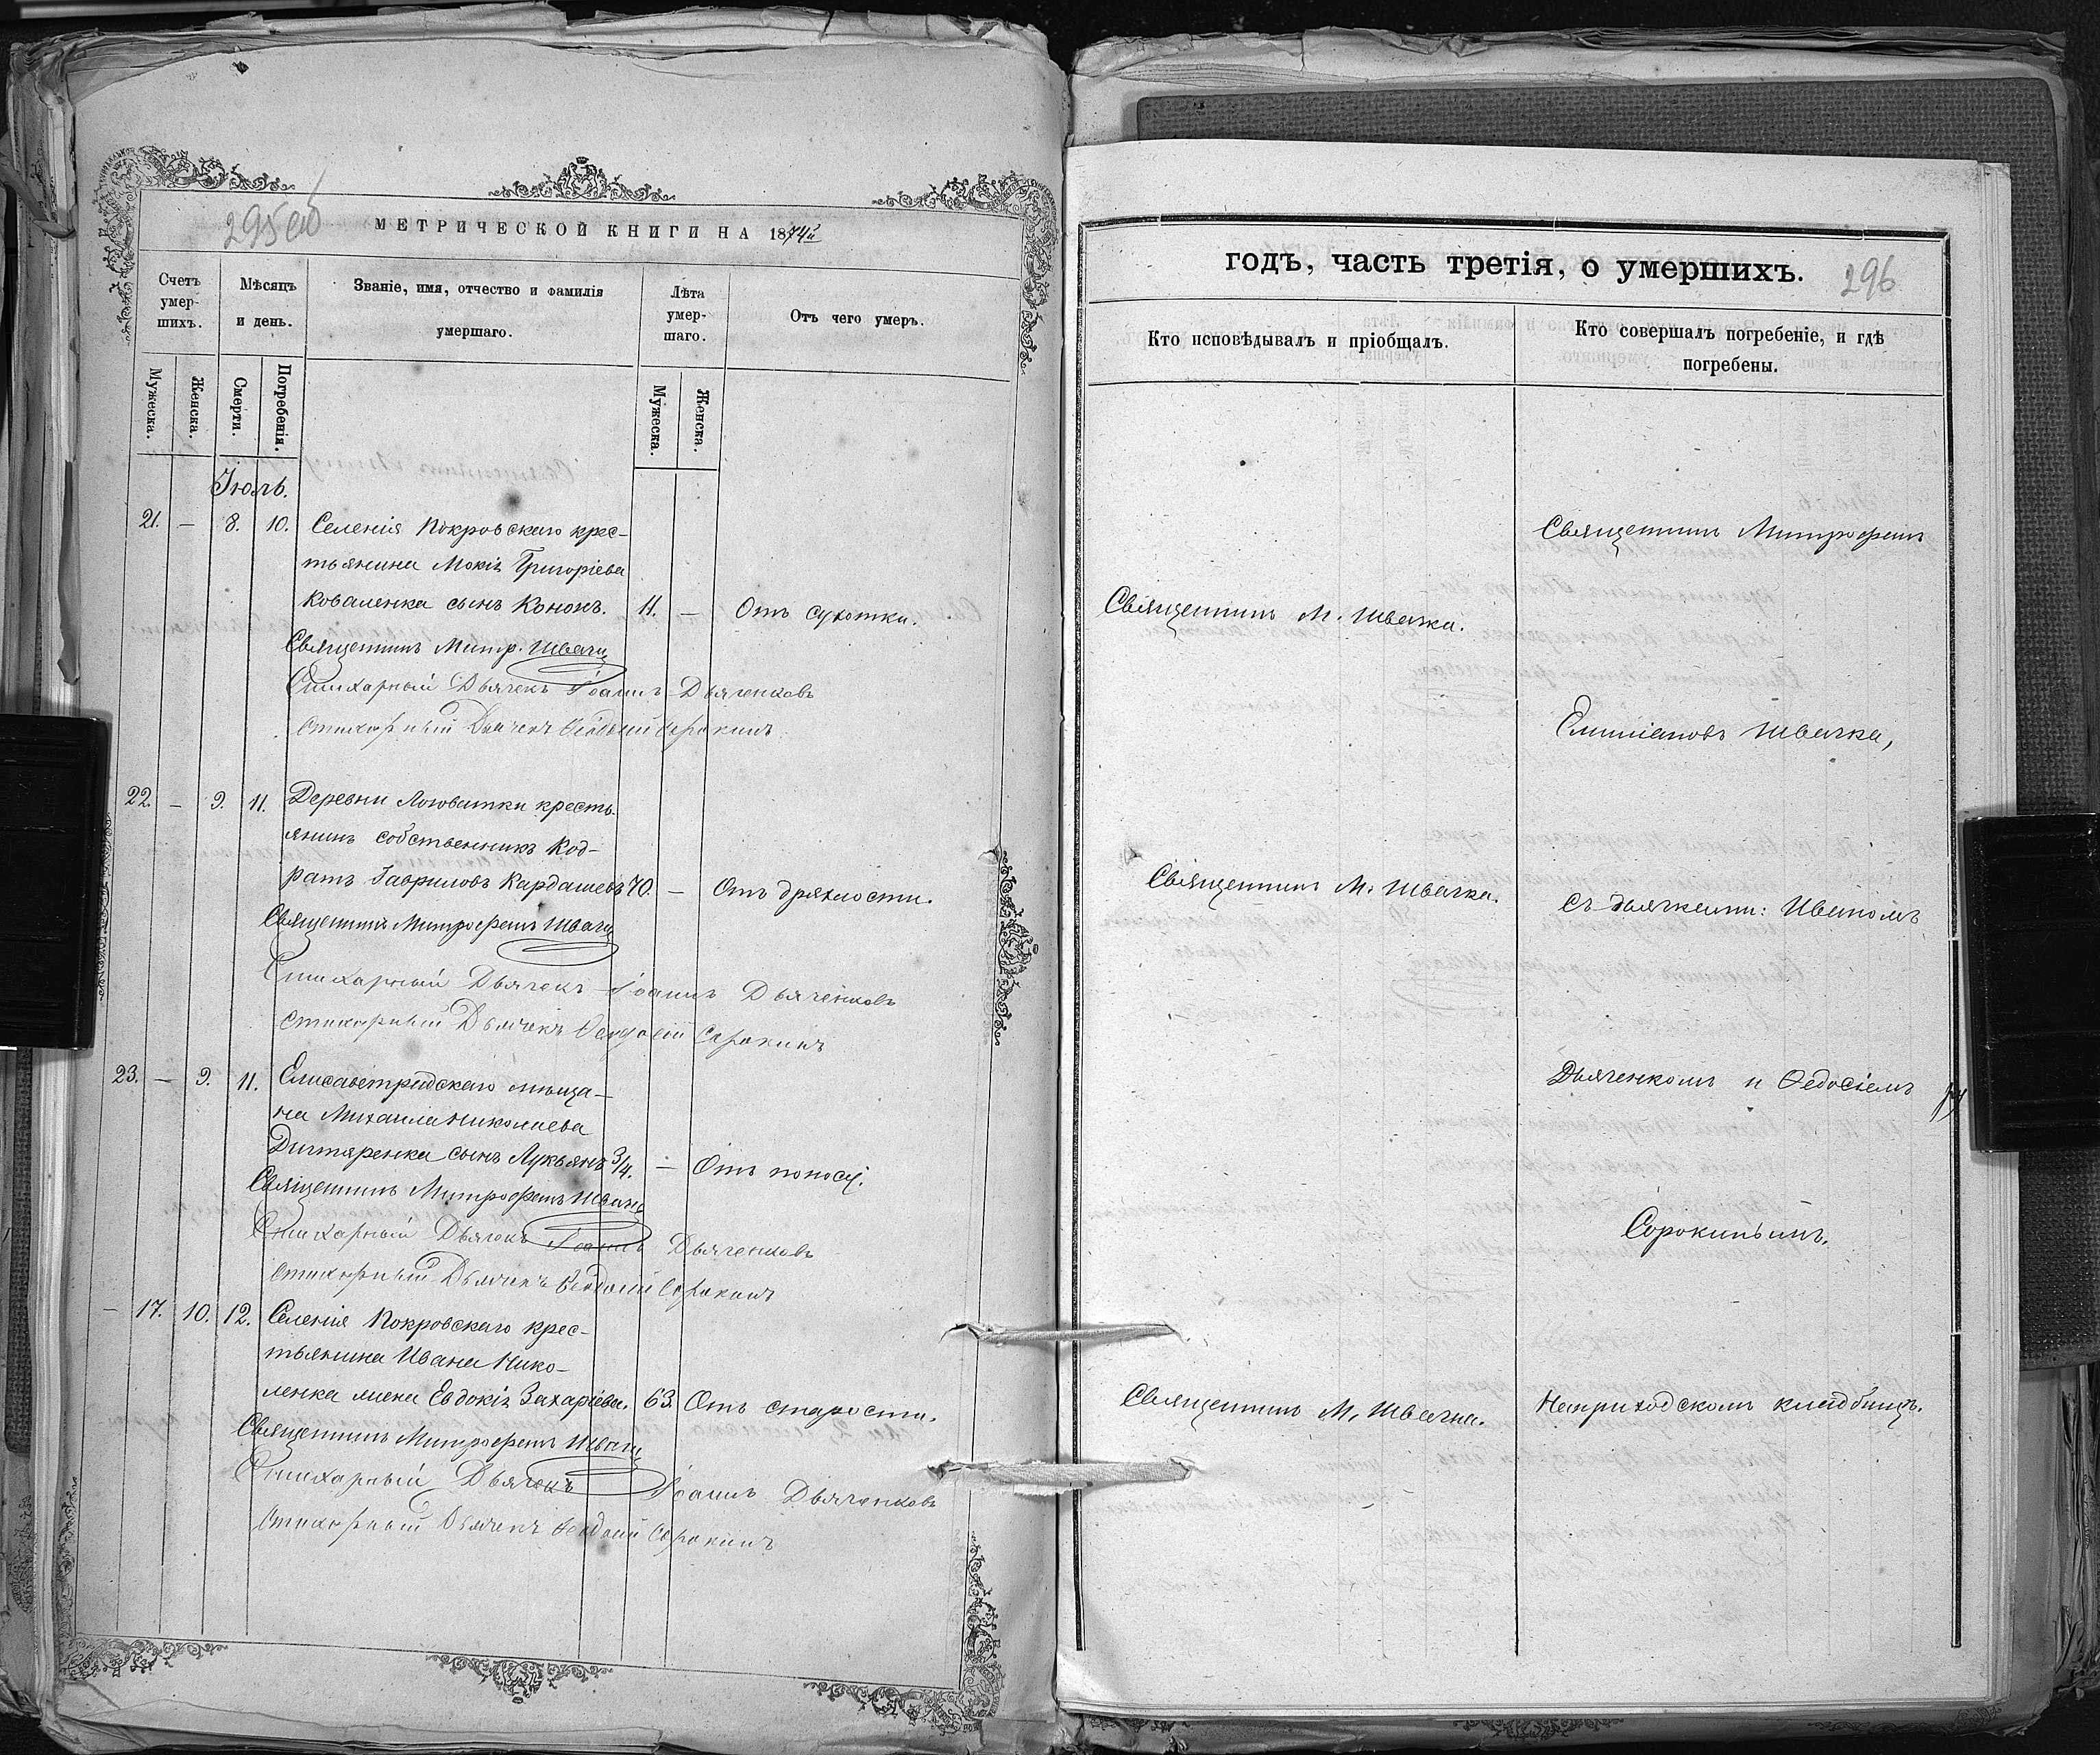 295об
МЕТРИЧЕСКОЙ КНИГИ НА 1874й
Счетъ умер-шихъ.
Мѣсяцъ и день.
Званіе, имя, отчество и фамилія умершаго.
Лѣта умер-шаго.
Отъ чего умеръ.
Мужеска.
Женска.
Смерти.
Погребенія.
Мужеска.
Женска.
Іюль.
21. — 8. 10. Селенія Покровскаго крес-
тьянина Мокія Григоріева
Коваленка сынъ Кононъ. 11. — Отъ сухотки.
Священникъ Митр. Швачка
Стихарный Дьячекъ Іоаннъ Дьяченковъ
Стихарный Дьячекъ Феодосій Сорокинъ
22. — 9. 11. Деревни Лозоватки кресть-
янинъ собственникъ Код-
ратъ Гавриловъ Кардашевъ 70. — Отъ дряхлости.
Священникъ Митрофанъ Швачка
Стихарный Дьячекъ Іоаннъ Дьяченковъ
Стихарный Дьячекъ Феодосій Сорокинъ
23. — 9. 11. Елисаветградскаго мѣща-
на Михаила Николаева
сынъ Лукьянъ 3/4. — Отъ поноса.
Священникъ Митрофанъ Швачка
Стихарный Дьячекъ Іоаннъ Дьяченковъ
Стихарный Дьячекъ Феодосій Сорокинъ
— 17. 10. 12. Селенія Покровскаго крес-
тьянина Ивана Нико-
ленка жена Евдокія Захаріева. 63. Отъ старости.
Священникъ Митрофанъ Швачка
Стихарный Дьячекъ Іоаннъ Дьяченковъ
Стихарный Дьячекъ Феодосій Сорокинъ
годъ, часть третія, о умершихъ.
296
Кто исповѣдывалъ и пріобщалъ.
Кто совершалъ погребеніе, и гдѣ
погребены.
Священникъ Митрофанъ
Священникъ М. Швачка.
Емиліановъ Швачка,
Священникъ М. Швачка.
съ дьячками: Иваномъ
Дьяченкомъ и Ѳедосіемъ
Сорокинымъ.
Священникъ М. Швачка.
На приходскомъ кладбищѣ.